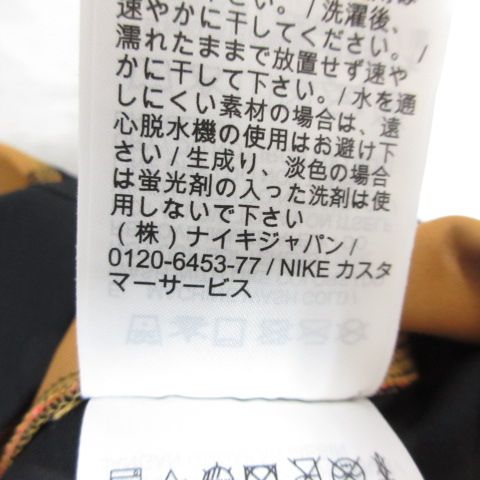 下さい。/ 洗濯後、
速やかに干してください。/
濡れたままで放置せず速や
かに干して下さい。/ 水を通
しにくい素材の場合は、遠
心脱水機の使用はお避け下
さい / 生成り、淡色の場合
は蛍光剤の入った洗剤は使
用しないで下さい
(株) ナイキジャパン /
0120-6453-77 / NIKE カスタ
マーサービス